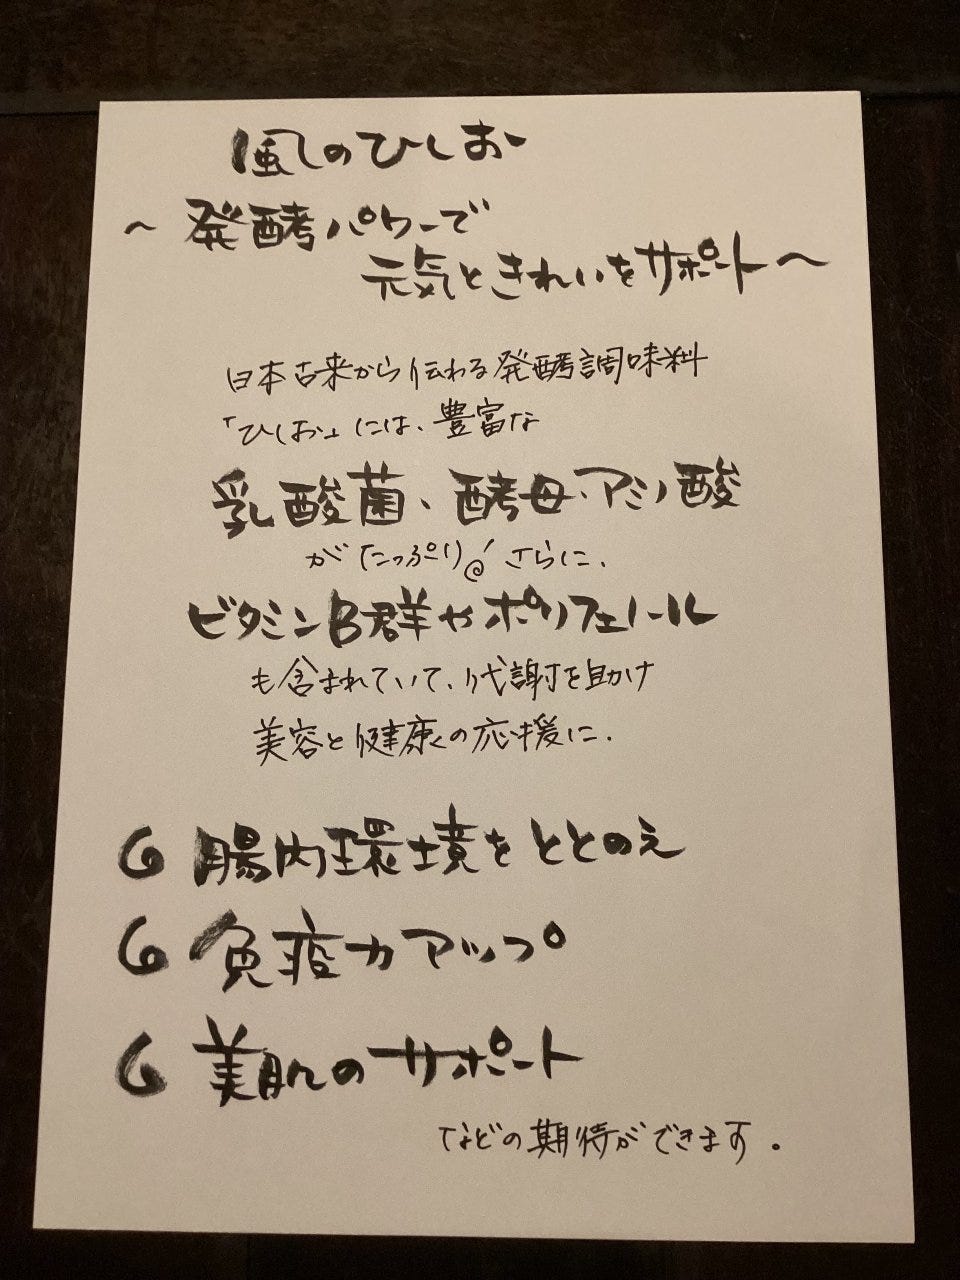 風のひしお
～発酵パワーで
元気ときれいをサポート～
日本古来から伝わる発酵調味料
「ひしお」には、豊富な
乳酸菌、酵母、アミノ酸
がたっぷり！さらに、
ビタミンB群やポリフェノール
も含まれていて、代謝を助け
美容と健康の応援に。
腸内環境をととのえ
免疫力アップ
美肌のサポート
などの期待ができます。